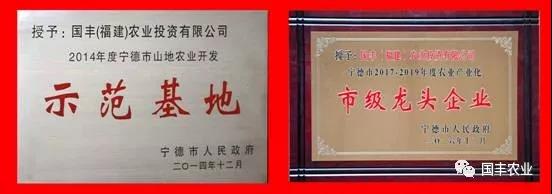 授予：国丰(福建)农业投资有限公司
2014年度宁德市山地农业开发
示范基地
宁德市人民政府
二〇一四年十二月
授予：国丰（福建）农业投资有限公司
宁德市2017-2019年度农业产业化
市级龙头企业
宁德市人民政府
国丰农业